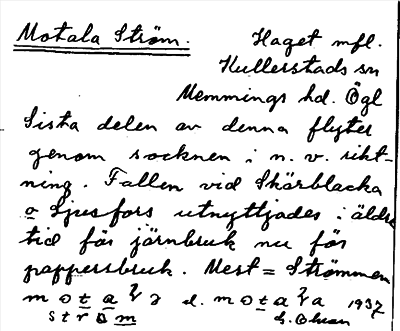 Motala Ström.
Haget mfl.
Kullerstads sn
Memmings hd. Ögl
Sista delen av denna flyter
genom socknen i n. v. rikt-
ning. Fallen vid Skärblacka
o Ljusfors utnyttjades i äldre
tid för järnbruk nu för
pappersbruk. Mest = Strömmen
1937
ström